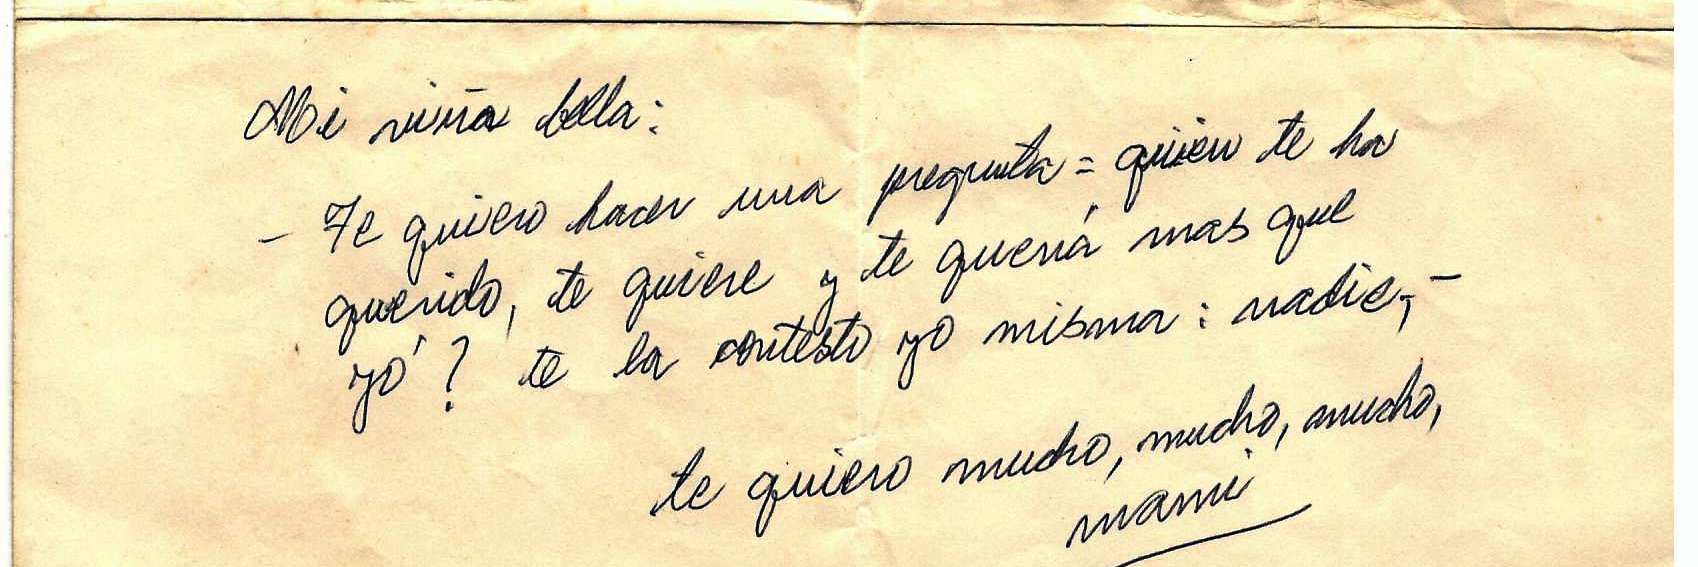 Mi niña bella:
- Te quiero hacer una pregunta = quien te ha
querido, te quiere y te querrá mas que
yó? te la contesto yo misma: nadie,-
te quiero mucho, mucho, mucho,
mami